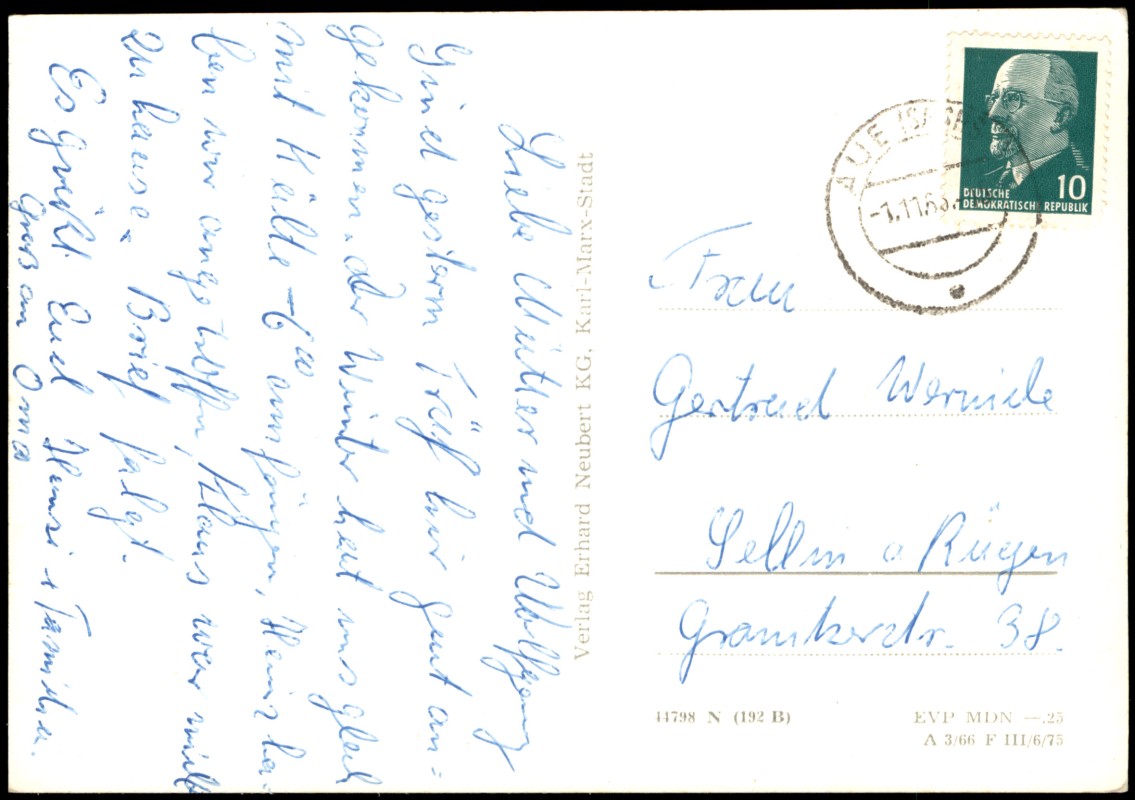 Liebe Mutter und Wolfgang
Sind gestern Früh hir gut an-
gekommen. der Winter hat uns gleich
mit Kälte -6° empfangen, Heinz ha-
ben wir angetroffen, Klaus war nicht
zu hause. Brief folgt.
Es grüßt Euch Hansi + Familie.
Gruß an Oma
Verlag Erhard Neubert KG, Karl-Marx-Stadt
DEUTSCHE
DEMOKRATISCHE REPUBLIK
10
AUE (SACHS)
-1.11.66.
Frau
Gertrud Wernicke
Sellin a Rügen
Granitzerstr. 38.
44798 N (192 B)
EVP MDN —.25
A 3/66 F III/6/75